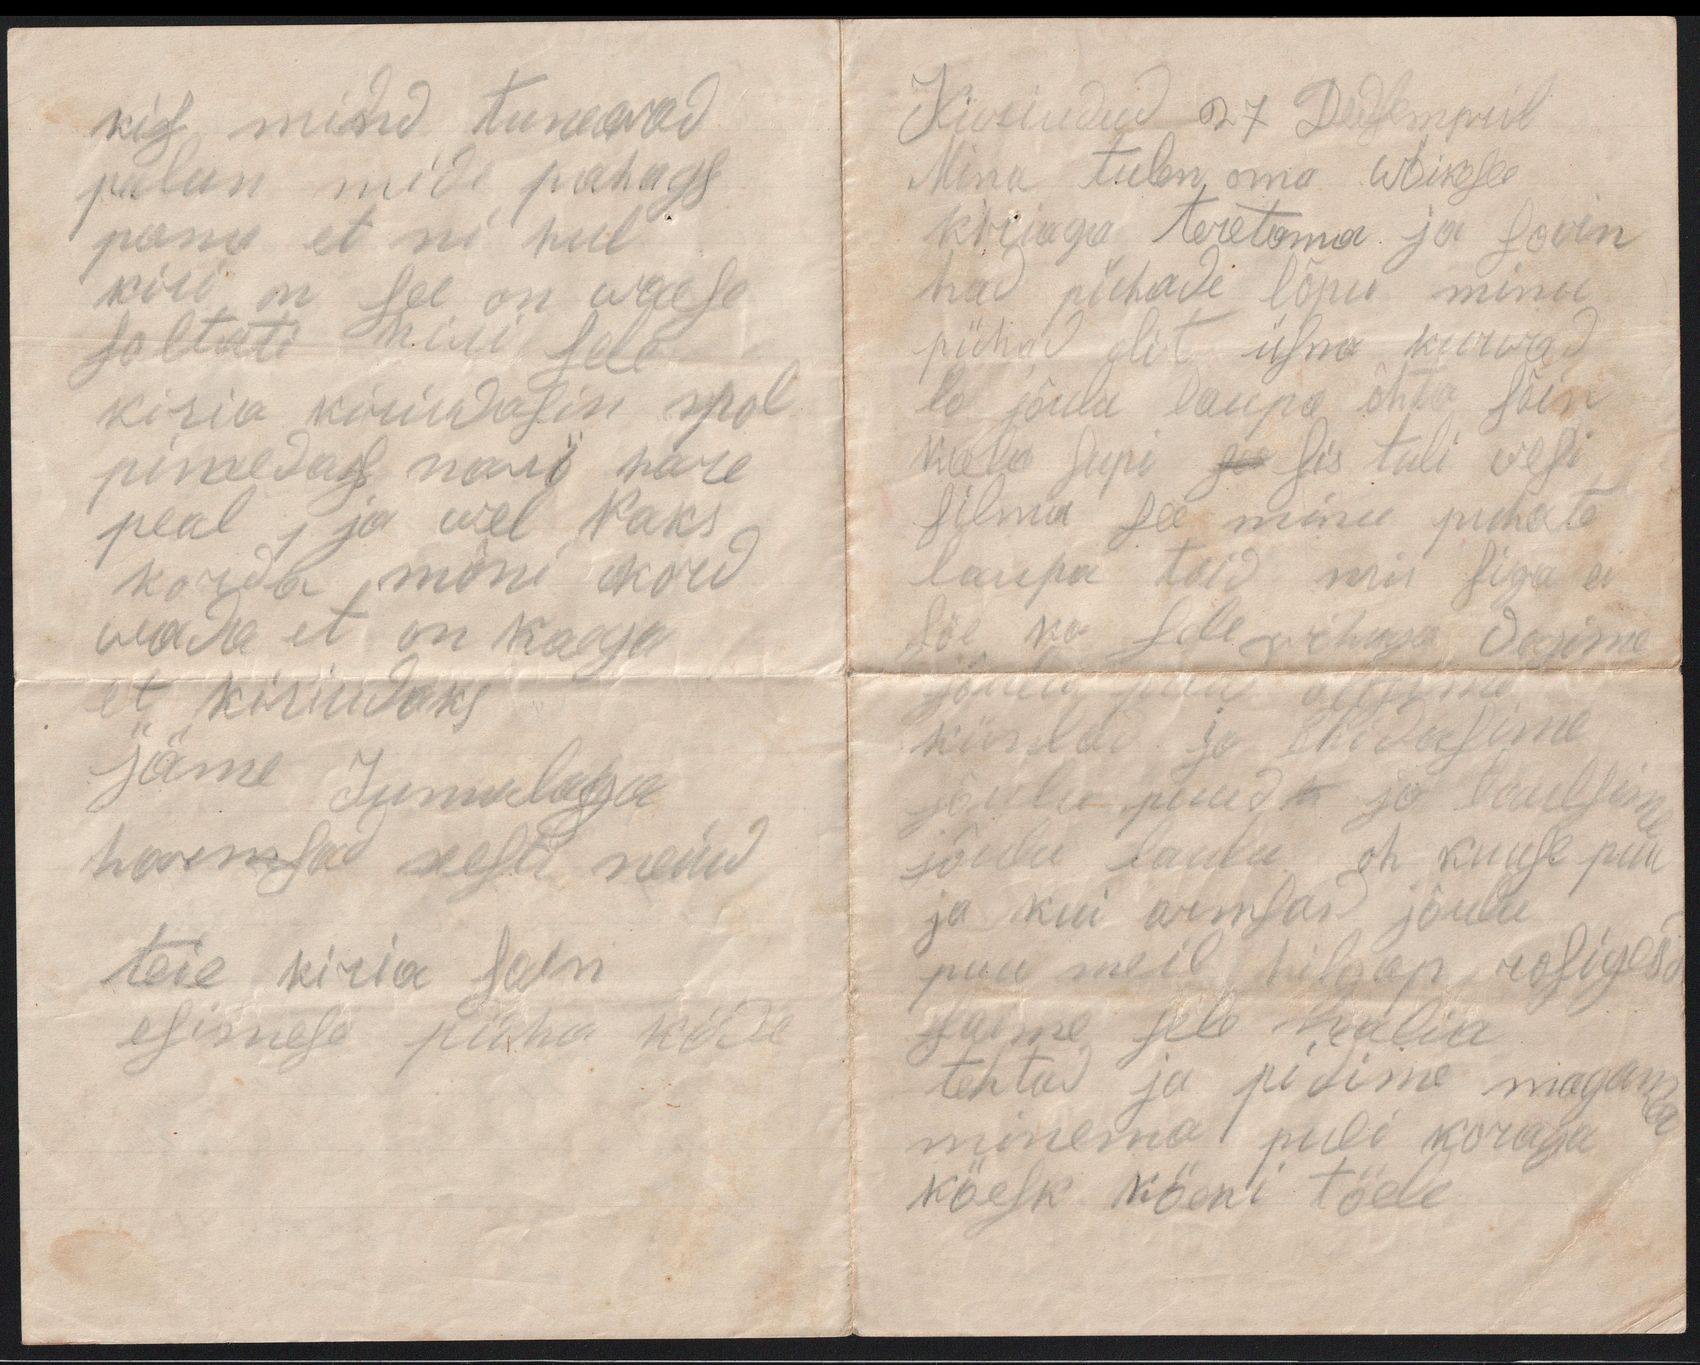 kis mind tunewad
palun midi pahags
pana et ni hul
kiri on see on waese
soltati kiri sele
kiria kiriudasin spol
pimedags nari hare
peal, ja wel kaks
korda mõni kord
wada et on kaega
et kiriudaks
jäme Jumalaga
harmsad sesti neiud
teie kiria sain
esimese püha käde
Kiriudud 27 Dedsempril
Mina tulen oma wäikse
kiriaga teretama ja sovin
häd pühade lõpu minu
pühad olit üsna kurwad
lo jõulu laupa õhta sõin
kala supi sis tuli wesi
silma see minu puhate
laupa toid mis siga ei
söe ka sele wihaga
jõulu puu
künlad ja ehidasime
jõulu puud ja laulsime
jõulu laulu oh kuuse puu
ja kui armsas jõulu
puu meil hilgap rosigest
saime sele nalia
tehtud ja pidime magama
minema puli koraga
käesk käeni täele